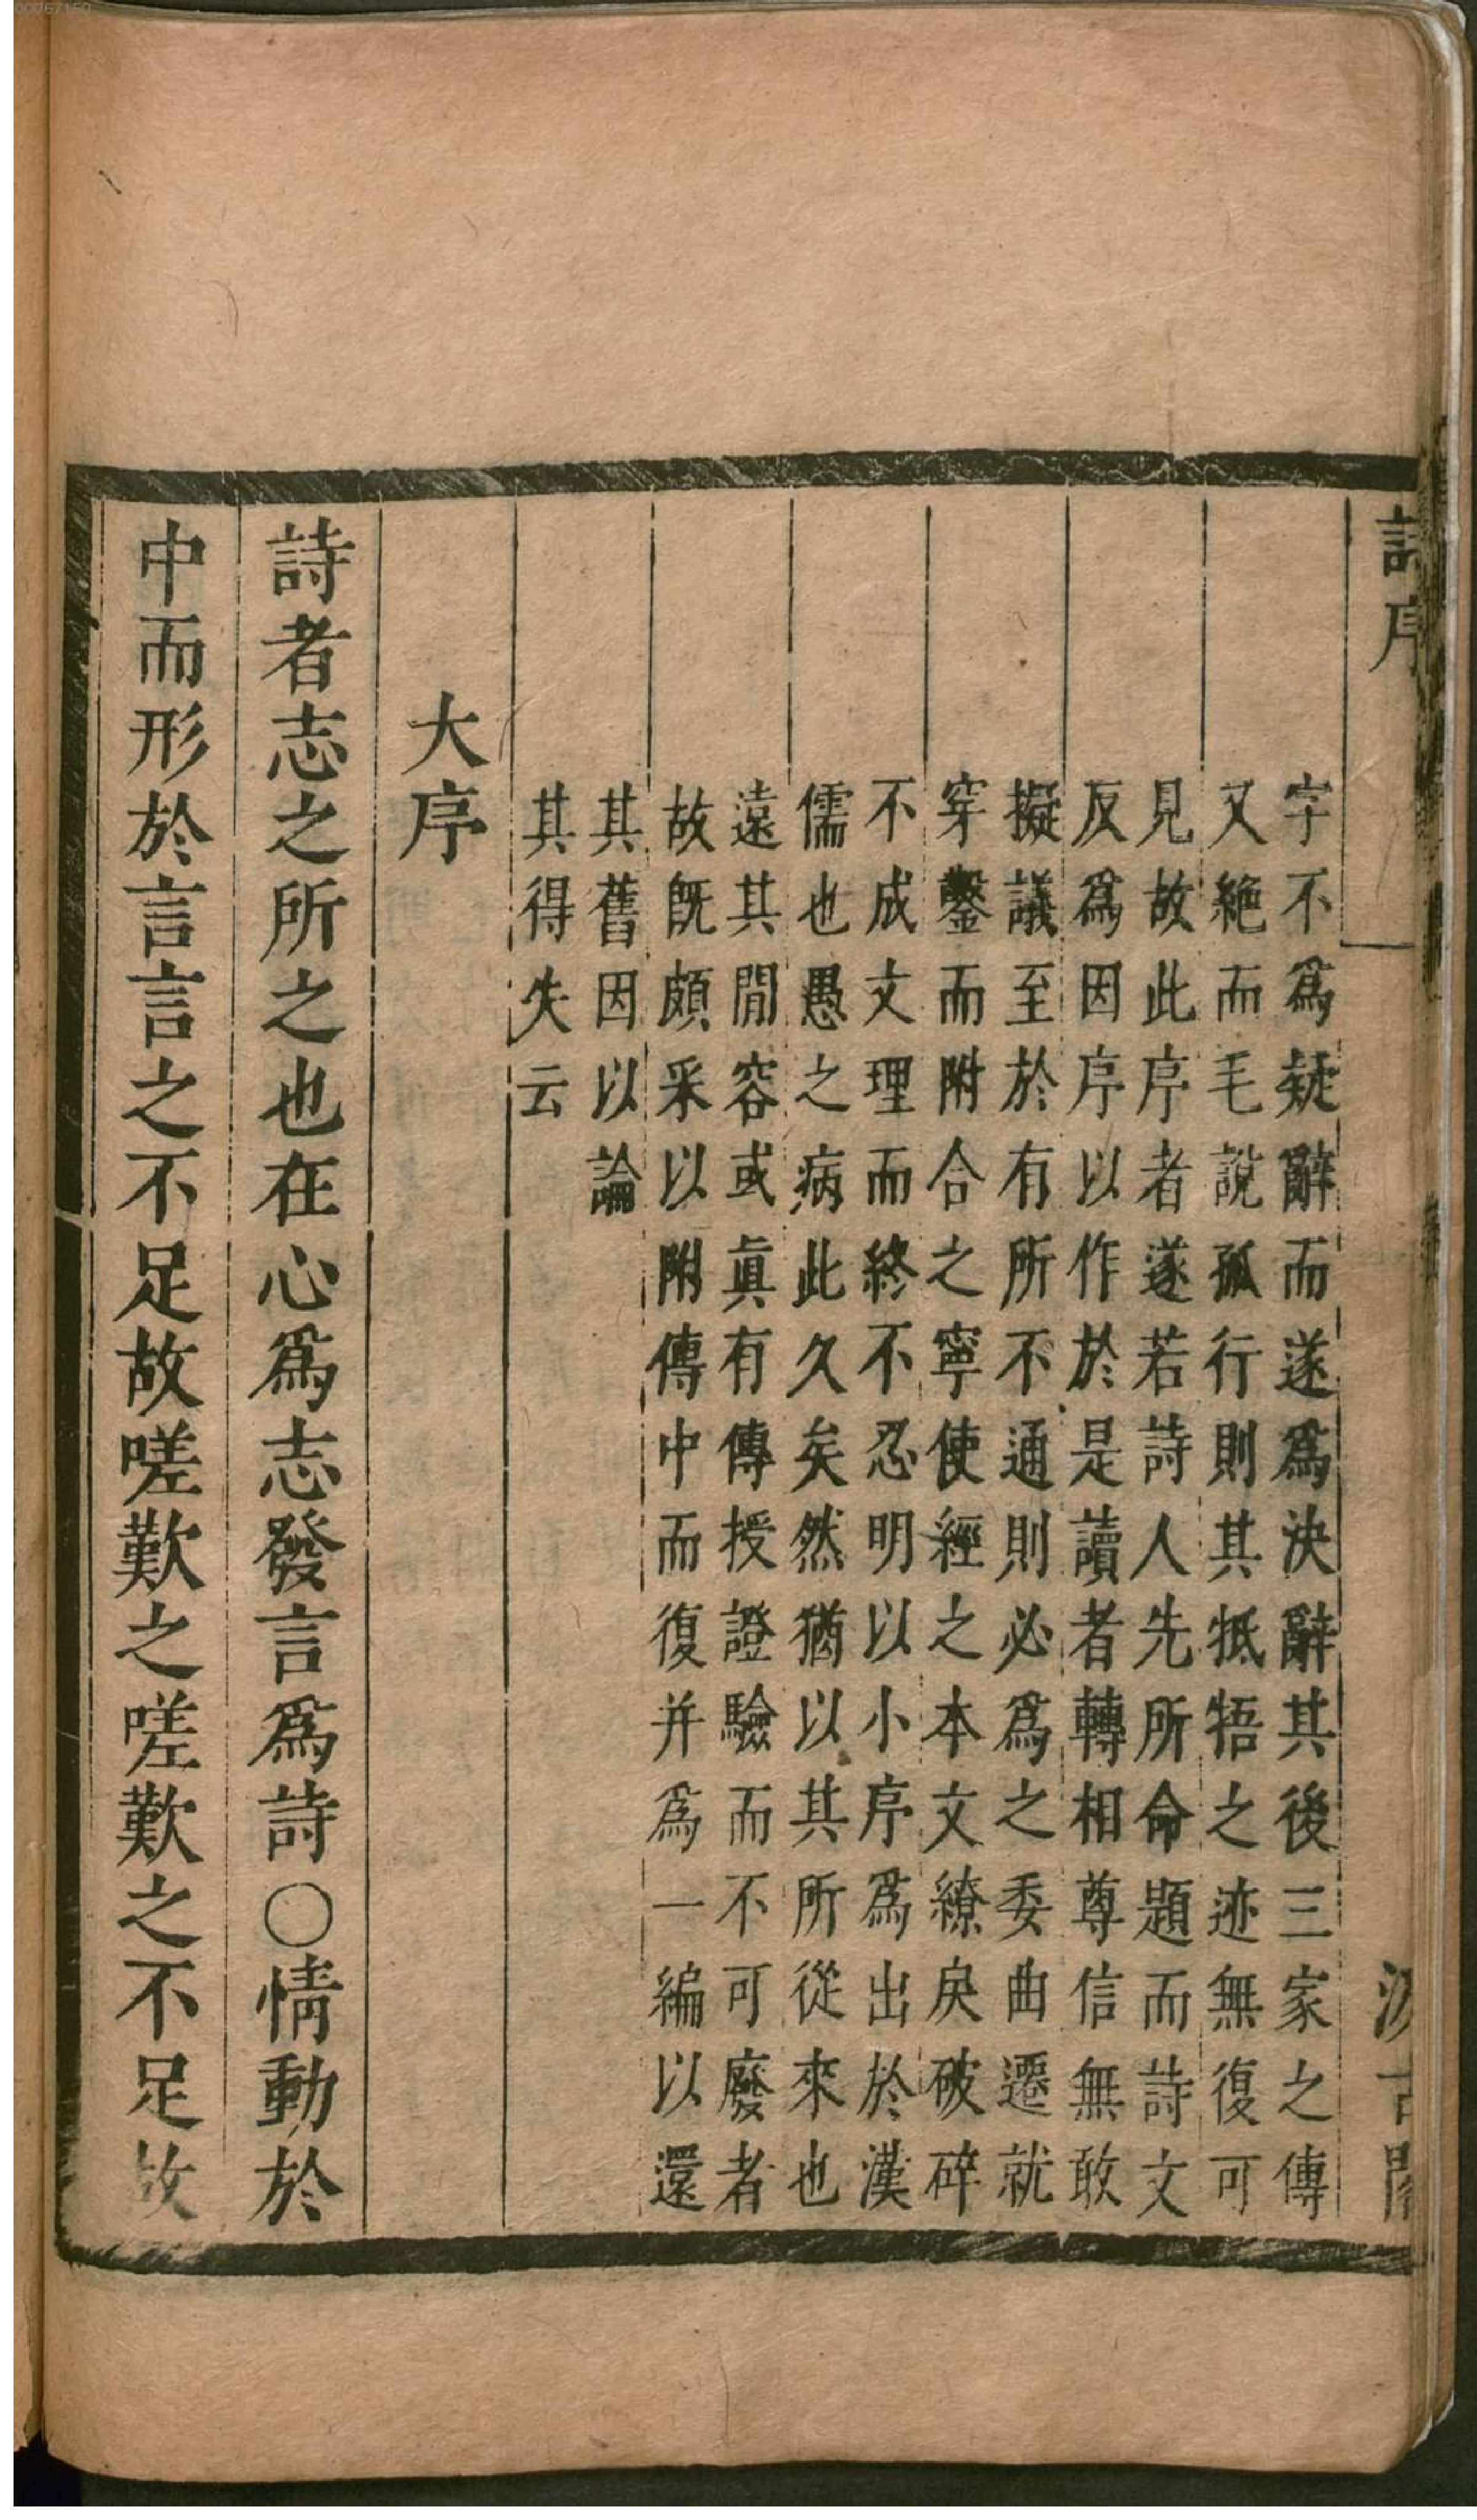 詩序
一
汲古閣
字不爲疑辭而遂爲決辭其後三家之傳
又絶而毛說孤行則其牴牾之迹無復可
見故此序者遂若詩人先所命題而詩文
反爲因序以作於是讀者轉相尊信無敢
擬議至於有所不通則必爲之委曲遷就
穿鑿而附合之寧使經之本文繚戾破碎
不成文理而終不忍明以小序爲出於漢
儒也愚之病此久矣然猶以其所從來也
遠其間容或眞有傳授證驗而不可廢者
故旣頗采以附傳中而復并爲一編以還
其舊因以論
其得失云
大序
詩者志之所之也在心爲志發言爲詩○情動於
中而形於言言之不足故嗟歎之嗟歎之不足故